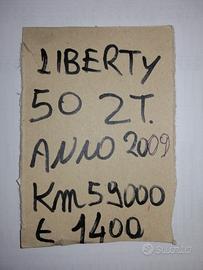 LIBERTY
50 2T.
ANNO 2009
Km 59000
€ 1400
subito